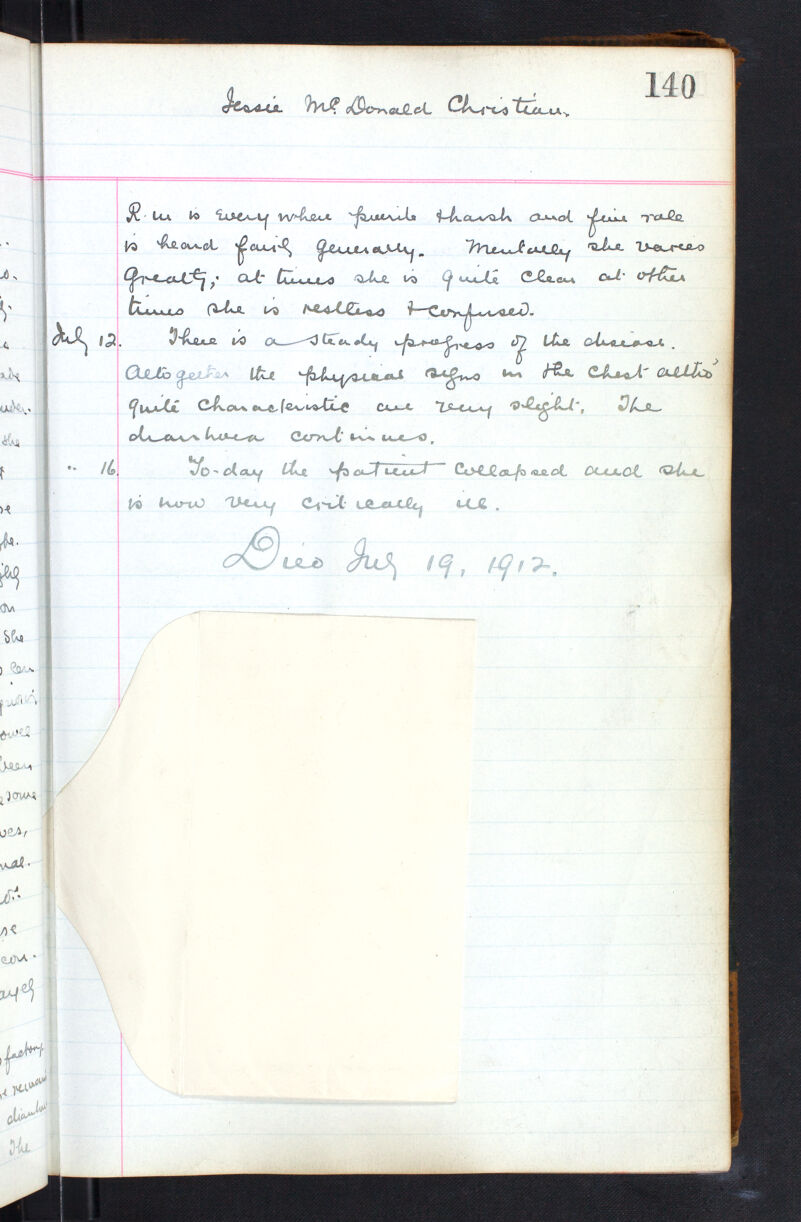 140
Jessie McDonald Christian.
R.m is every where puerile & harsh and fine rale
is heard fairly generally. Mentally she varies
greatly; at times she is quite clear at other
times she is restless & confused.
July 12. There is a steady progress of the disease.
Altogether the physical signs in the chest altho'
quite characteristic are very slight. The
diarrhoea continues.
" 16. To-day the patient collapsed and she
is now very critically ill.
Died July 19, 1912.